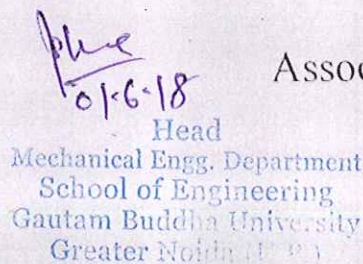 Assoc
01-6-18
Head
Mechanical Engg. Department
School of Engineering
Gautam Buddha University
Greater Noida